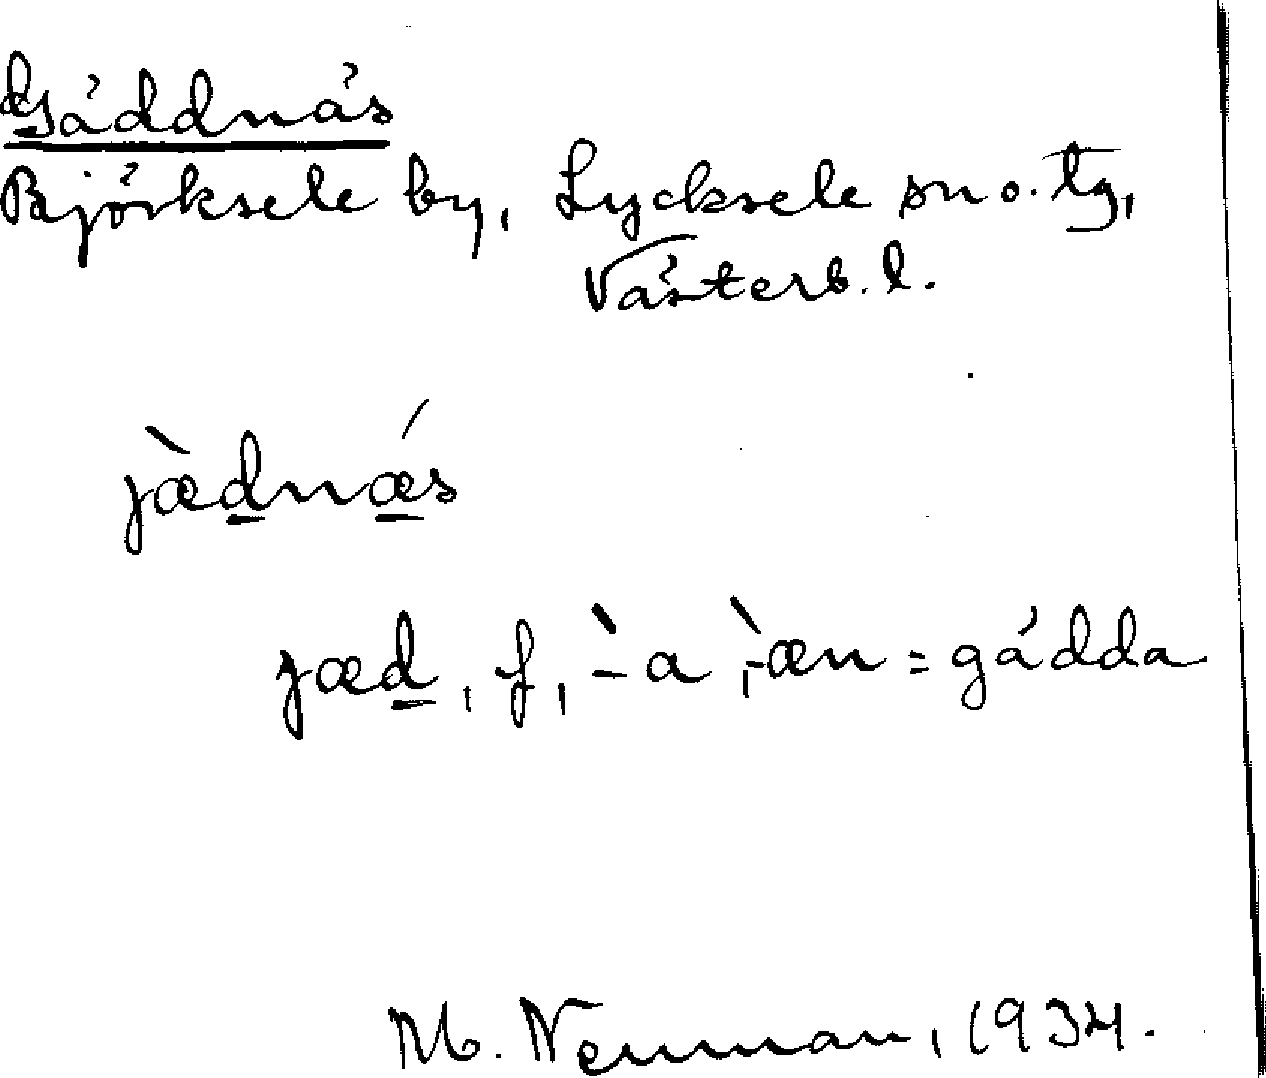 Gäddnäs
Björksele by, Lycksele sn o. tg,
Västerb. l.
jæ̀dnǽs
jæd, f, -̀a, -̀æn = gädda
M. Nenman, 1934.